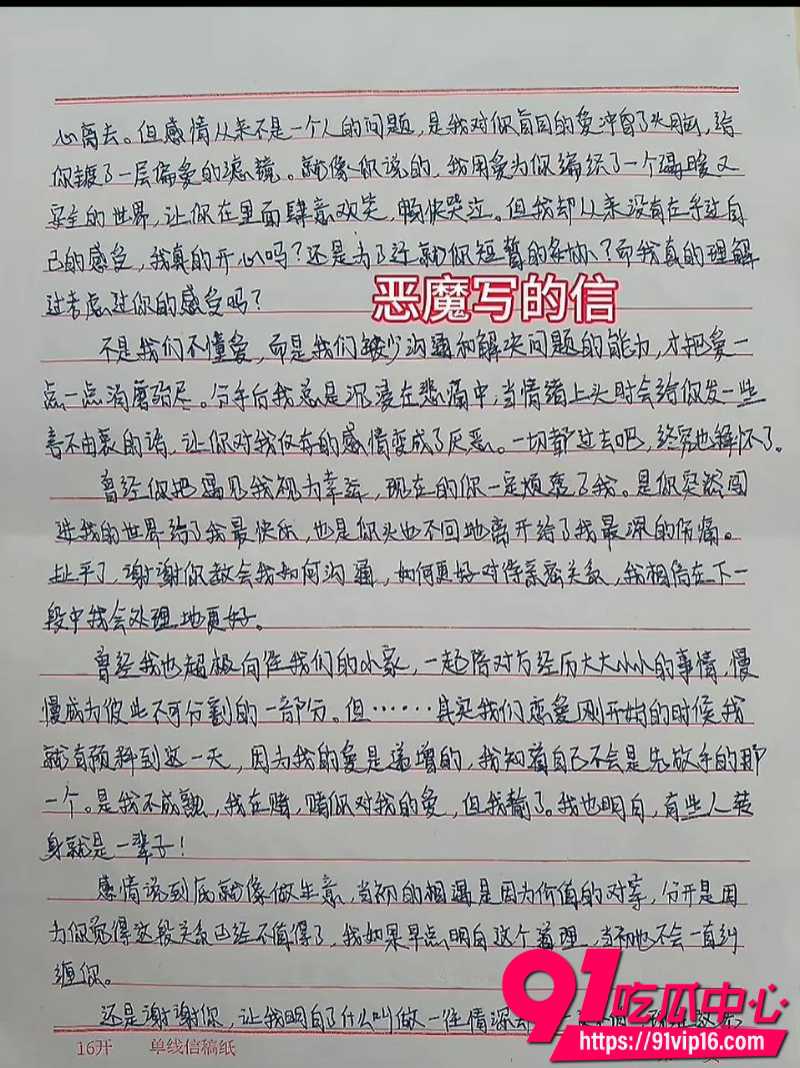 心离去。但感情从来不是一个人的问题,是我对你盲目的爱冲昏了头脑,给
你镀了一层偏爱的滤镜。就像你说的,我用爱为你编织了一个温暖又
安全的世界,让你在里面肆意欢笑,畅快哭泣。但我却从来没有在乎过自
己的感受,我真的开心吗?还是为了迁就你短暂的?而我真的理解
过考虑过你的感受吗?
恶魔写的信
不是我们不懂爱,而是我们缺少沟通和解决问题的能力,才把爱一
点一点消磨殆尽。分手后我总是沉浸在悲痛中,当情绪上头时会给你发一些
言不由衷的话,让你对我仅存的感情变成了厌恶。一切都过去吧,终究也释怀了。
曾经你把遇见我视为幸运,现在的你一定烦透了我。是你突然闯
进我的世界给了我最快乐,也是你头也不回地离开给了我最深的伤痛。
扯平了,谢谢你教会我如何沟通,如何更好对待亲密关系,我相信在下一
段中我会处理地更好。
曾经我也超极向往我们的小家,一起陪对方经历大大小小的事情,慢
慢成为彼此不可分割的一部分。但……其实我们恋爱刚开始的时候我
就有预料到这一天,因为我的爱是递增的,我知道自己不会是先放手的那
一个。是我不成熟,我在赌,赌你对我的爱,但我输了。我也明白,有些人转
身就是一辈子!
感情说到底就像做生意,当初的相遇是因为价值的对等,分开是因
为你觉得这段关系已经不值得了,我如果早点明白这个道理,当初也不会一直纠
缠你。
还是谢谢你,让我明白了什么叫做一往情深
16开 单线信稿纸
91吃瓜中心
https://91vip16.com/